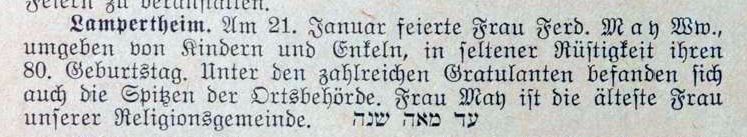 Feiern zu veranstalten.
Lampertheim. Am 21. Januar feierte Frau Ferd. May Ww.,
umgeben von Kindern und Enkeln, in seltener Rüstigkeit ihren
80. Geburtstag. Unter den zahlreichen Gratulanten befanden sich
auch die Spitzen der Ortsbehörde. Frau May ist die älteste Frau
unserer Religionsgemeinde. עד מאה שנה